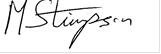 M Stimpson